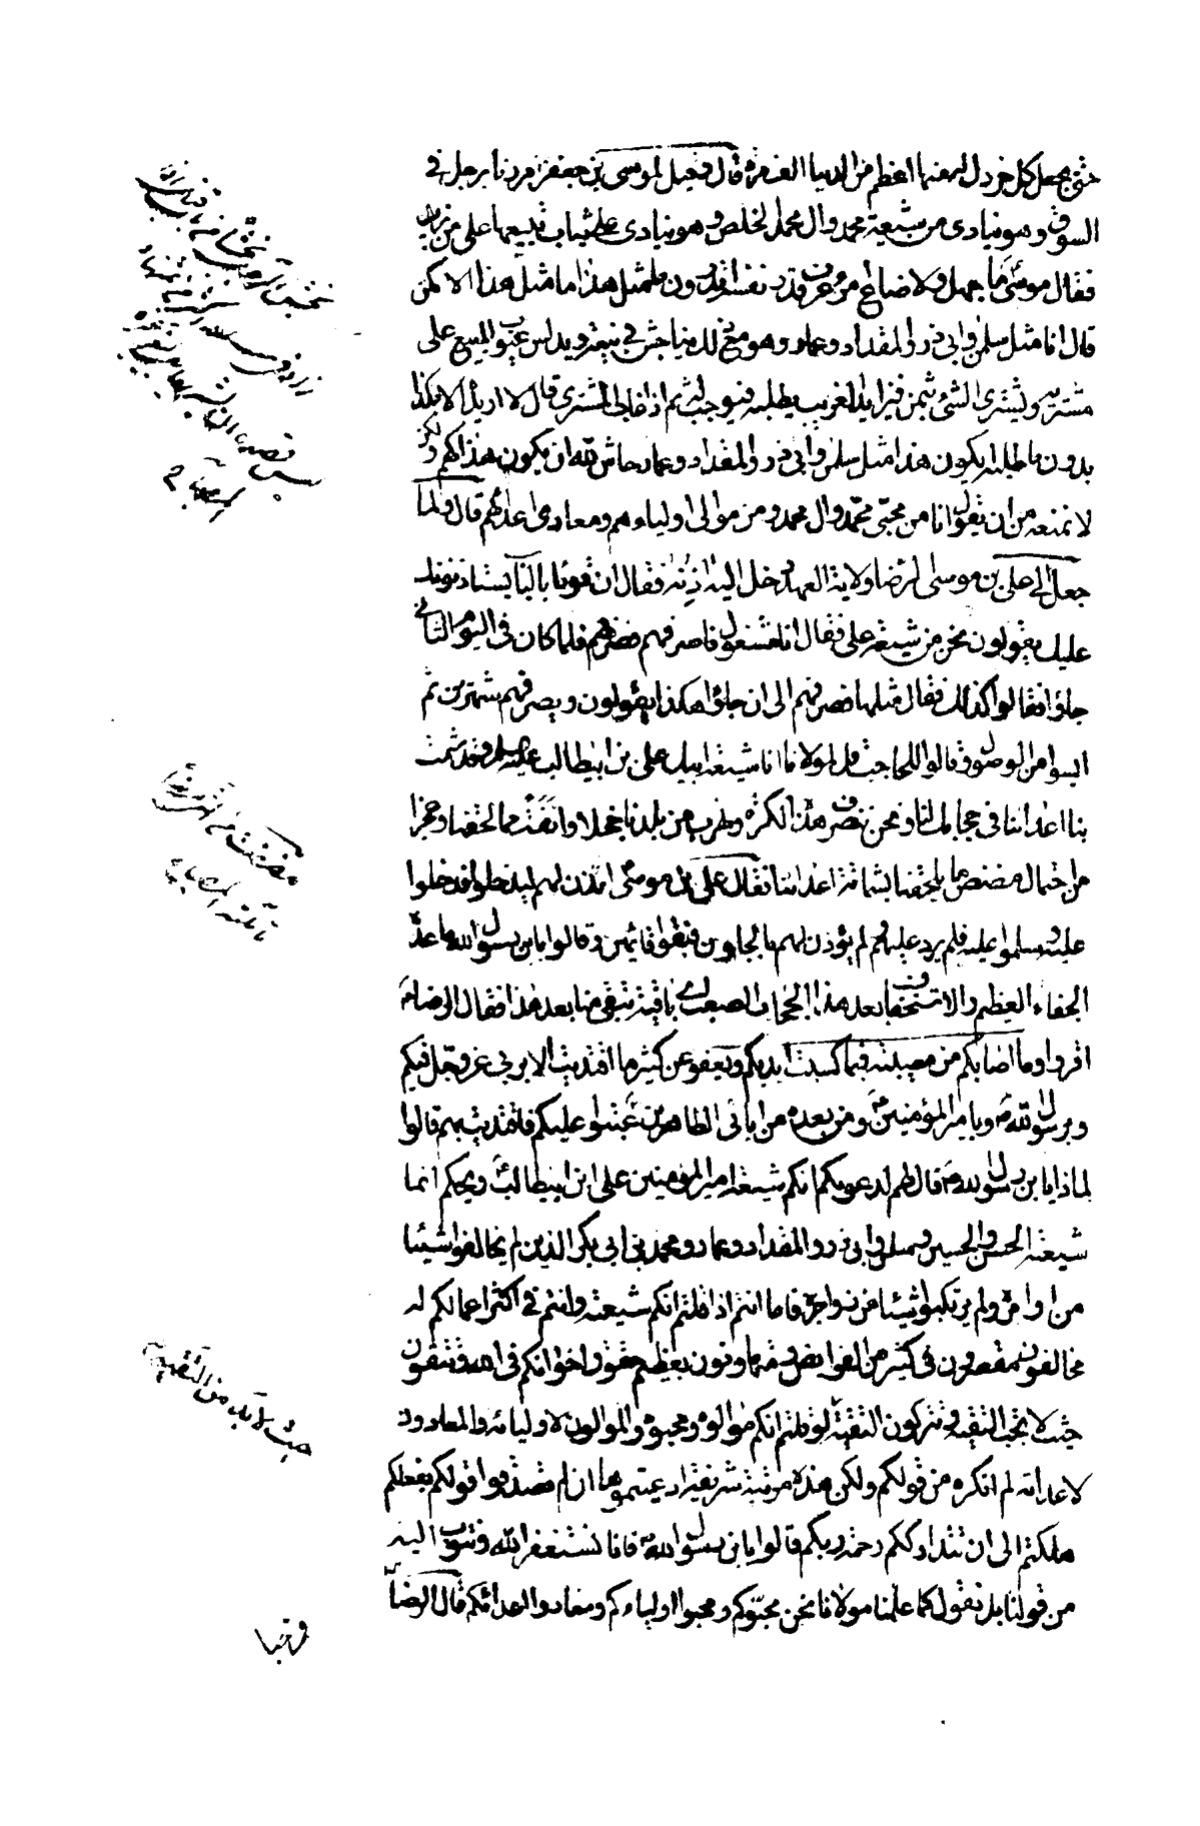 حتى يجعل كل خردل لهمنها اعظم من الدنيا الف مرة قال وقيل لموسى بن جعفر مررنا برجل في
السوق وهو ينادى من شيعة محمد وال محمد الخلص وهو ينادى على ثياب تبيعها على من يزيد
فقال موسى ما جهل ولا ضاع امرؤ عرف قدر نفسه اتدرون ما مثل هذا ما مثل هذا الا كمن
قال انا مثل سلمن وابى ذر والمقداد وعمار وهو مع ذلك يناجش في بيعه ويدلس عيوب المبيع على
مشتريه ويشترى الشئ بثمن فيزايد الغريب يطلبه فيوجب له ثم اذا غاب المشترى قال لا اريده الا بكذا
بدون ما طلبه ايكون هذا مثل سلمن وابى ذر والمقداد وعمار حاش لله ان يكون هذا كهم ولكن
لا نمنعه من ان يقول انا من محبى محمد وال محمد ومن موالى اولياءهم ومعادى اعدائهم قال ولما
جعل الى على بن موسى الرضا ولاية العهد دخل اليه اذنه فقال ان قوما بالباب يستاذنون
عليك يقولون نحن من شيعة على فقال انا مشغول فاصرفهم فصرفهم فلما كان في اليوم الثانى
جاؤا فقالوا كذلك فقال مثلها فصرفهم الى ان جاؤا هكذا يقولون ويصرفهم شهرين ثم
ايسوا من الوصول وقالوا للحاجب قل لمولانا انا شيعة ابيك على بن ابيطالب عليه السلم وقد شمت
بنا اعدائنا في حجابك لنا ونحن ننصرف هذه الكرة ونهرب من بلدنا خجلا وانفة مما لحقنا وعجزا
من احتمال مضض ما يلحقنا بشماتة اعدائنا فقال على بن موسى ائذن لهم ليدخلوا فدخلوا
عليه وسلموا عليه فلم يرد عليهم ولم يؤذن لهم بالجلوس فبقوا قائمين وقالوا يا بن رسول الله ما هذا
الجفاء العظيم والاستخفاف بعد هذا الحجاب الصعب اى باقية تبقى منا بعد هذا فقال الرضاء
اقروا وما اصابكم من مصيبة فبما كسبت ايديكم ويعفو عن كثير ما اقتديت الا بربى عز وجل فيكم
وبرسول الله وبامير المؤمنين ومن بعده من ابائى الطاهرين عتبوا عليكم فاقتديت بهم قالوا
لماذا يا بن رسول الله قال لهم لدعويكم انكم شيعة امير المؤمنين على ابن ابيطالب ويحكم انما
شيعته الحسن والحسين وسلمن وابى ذر والمقداد وعمار ومحمد بن ابى بكر الذين لم يخالفوا شيئا
من اوامره ولم يرتكبوا شيئا من زواجره فاما انتم اذا قلتم انكم شيعته وانتم في اكثر اعمالكم له
مخالفون مقصرون في كثير من الفرايض ومتهاونون بعظيم حقوق اخوانكم في الله وتتقون
حيث لا تجب التقية وتتركون التقية لو قلتم انكم موالوه ومحبوه والموالون لاوليائه والمعادون
لاعدائه لم انكره من قولكم ولكن هذه مرتبة شريفة ادعيتموها ان لم تصدقوا قولكم بفعلكم
هلكتم الى ان تتدارككم رحمة ربكم قالوا يا بن رسول الله فانا نستغفر الله ونتوب اليه
من قولنا بل نقول كما علمنا مولانا نحن محبوكم ومحبوا اولياءكم ومعادوا اعدائكم قال الرضا
حيث لابد من التقية
فرحبا